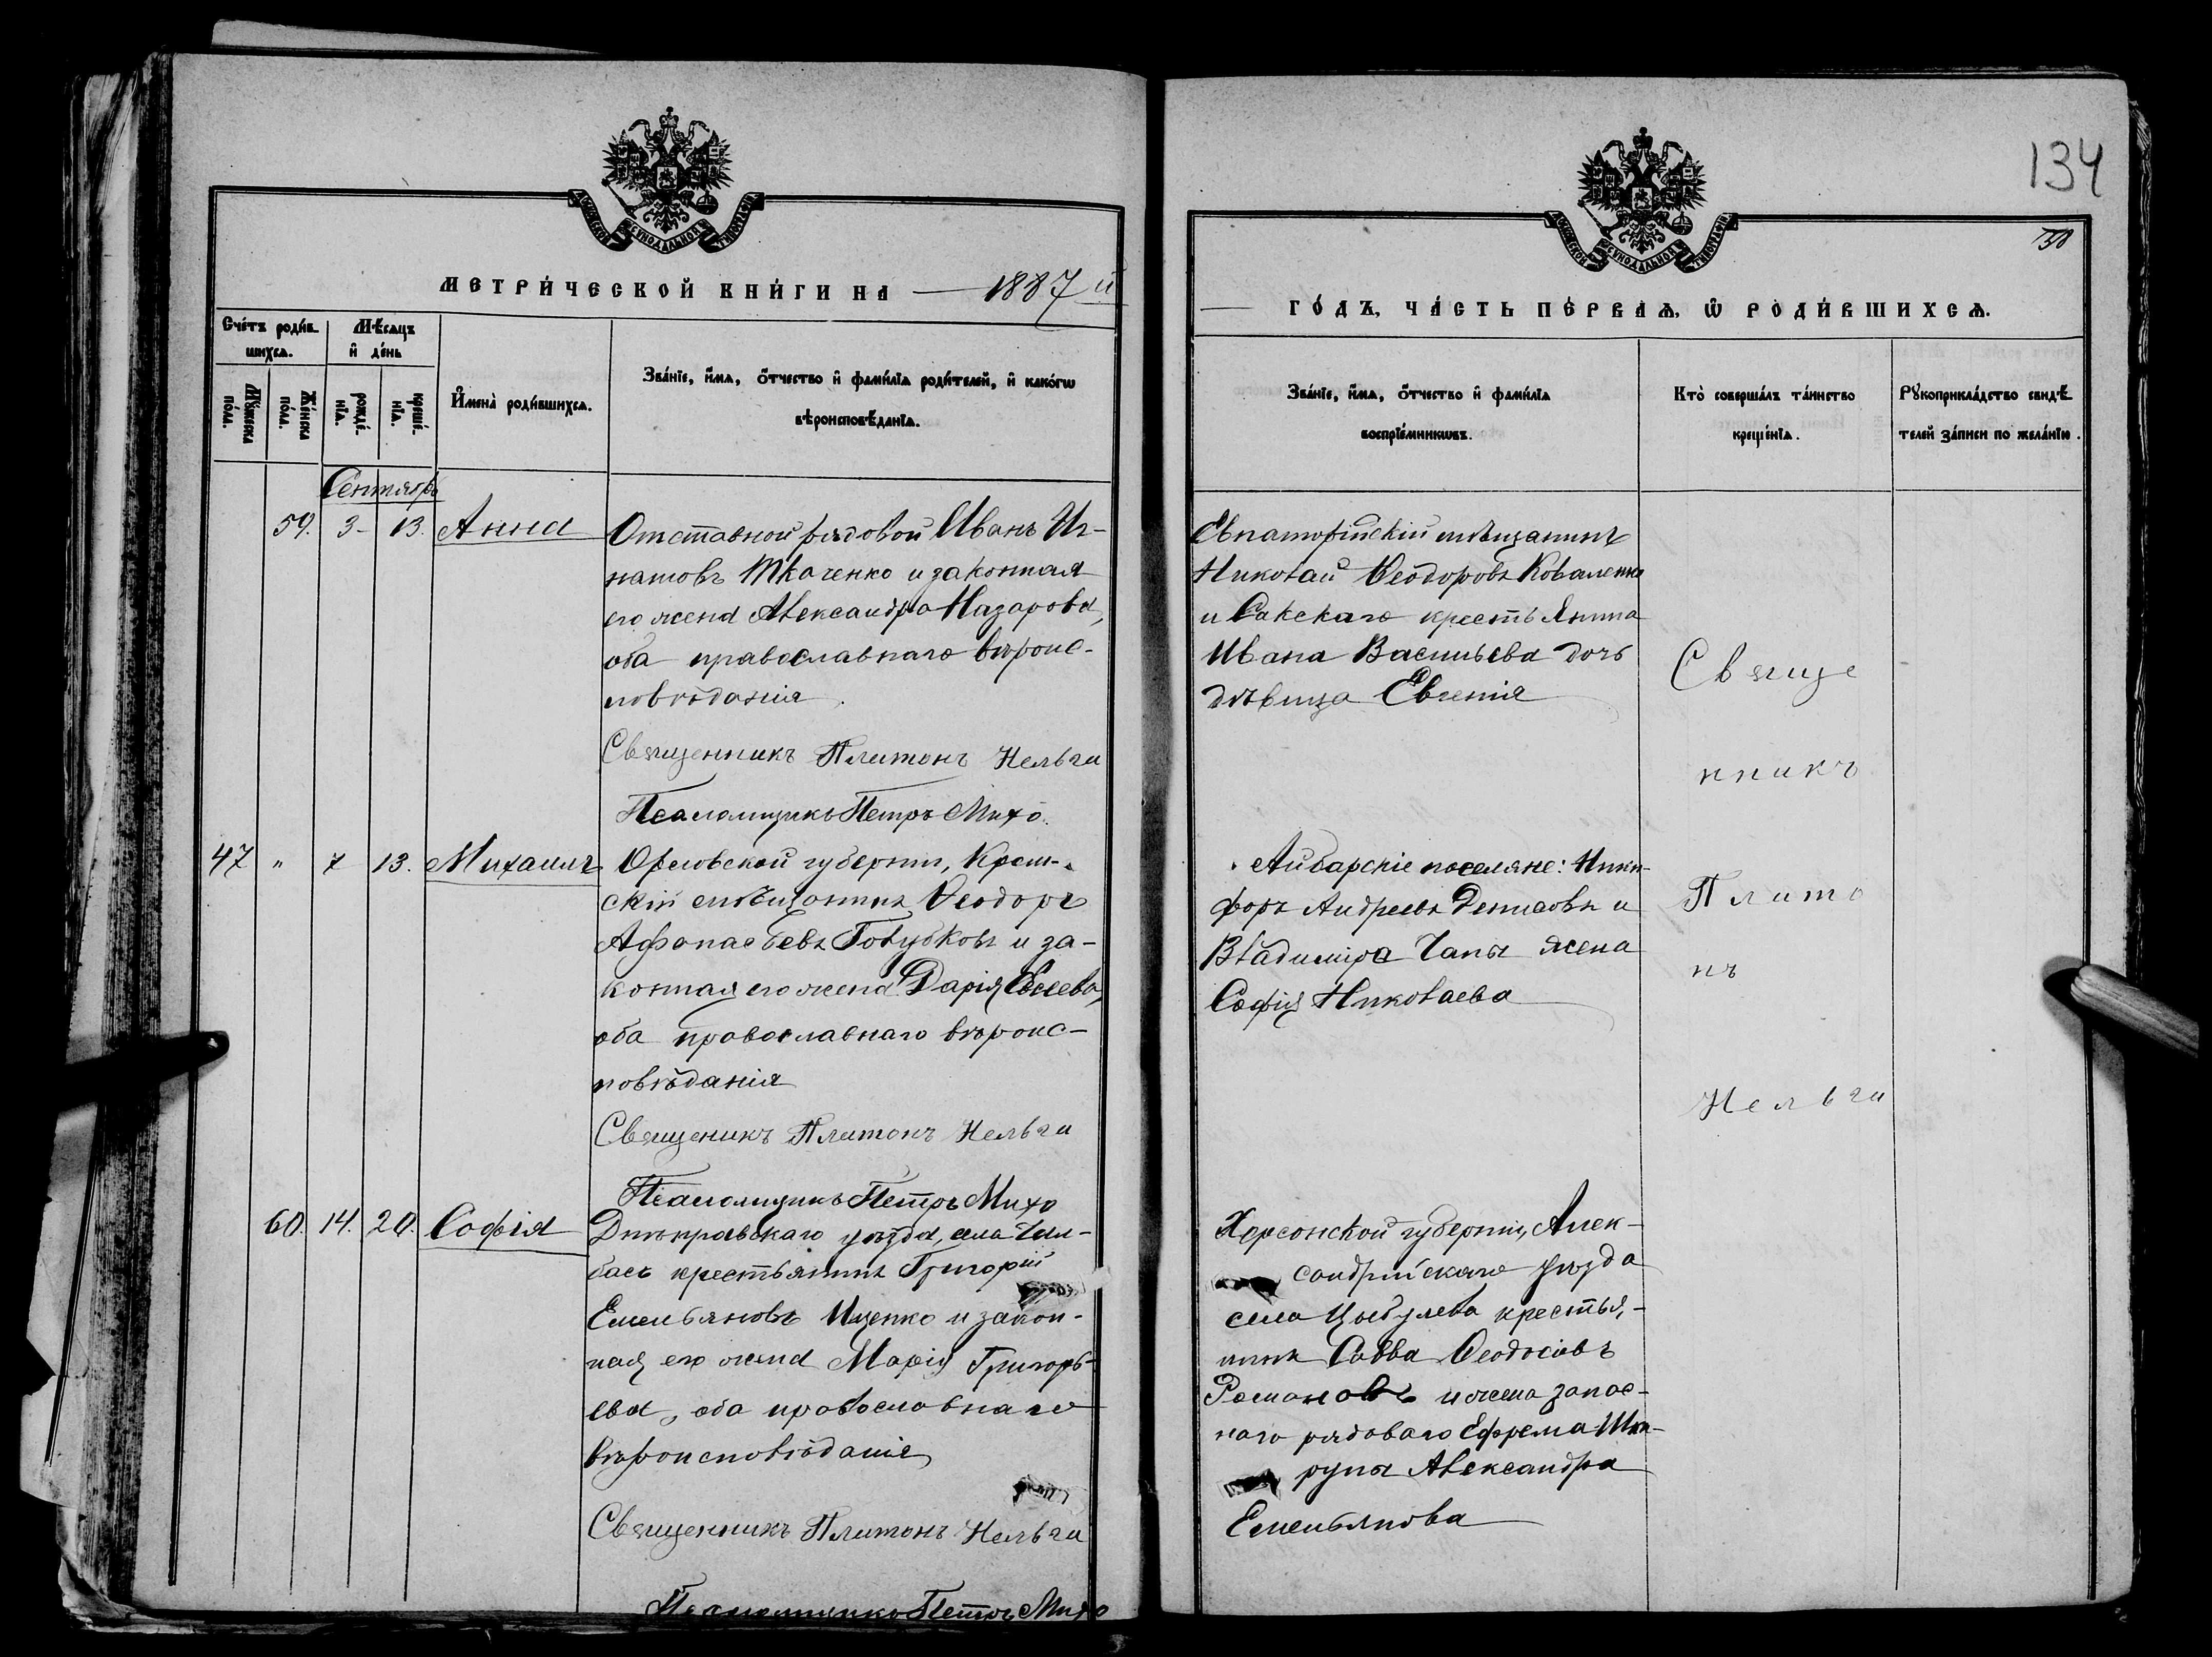 134
158
МОСКОВСКОЙ СѴНОДАЛЬНОЙ ТИПОГРАФІИ
МЕТРИ́ЧЕСКОЙ КНИ́ГИ НА 1887 й
Сче́тъ роди́в-
шихсѧ.
Мѣ́сѧцъ
и҆ де́нь
Мꙋ́жеска
по́ла.
Же́нска
по́ла.
рожде́-
нїѧ.
креще́-
нїѧ.
И҆мена̀ роди́вшихсѧ.
Зва́нїе, и҆́мѧ, ѻ҆́тчество и҆ фами́лїѧ роди́телей, и҆ како́гѡ
вѣроисповѣ́данїѧ.
Сентябрь
59. 3 - 13. Анна
Отставной рядовой Иванъ Иг-
натовъ Ткаченко и законная
его жена Александра Назарова,
оба православнаго вѣроис-
повѣданія.
Священникъ Платонъ Нельги
Псаломщикъ Петръ Михо
47 " 7 13. Михаилъ
Орловской губерніи, Кром-
скій мѣщанинъ Ѳеодоръ
Афанасьевъ Голубковъ и за-
конная его жена Дарія
оба православнаго вѣроис-
повѣданія
Священикъ Платонъ Нельги
Псаломщикъ Петръ Михо
60. 14. 20. Софія
Днѣпровскаго уѣзда, села Чал-
басъ крестьянинъ Григорій
Емельяновъ Ищенко и закон-
ная его жена Марія Григорь-
ева, оба православнаго
вѣроисповѣданія
Священникъ Платонъ Нельги
Псаломщикъ Петръ Михо
МОСКОВСКОЙ СѴНОДАЛЬНОЙ ТИПОГРАФІИ
ГО́ДЪ, ЧА́СТЬ ПЕ́РВАѦ, Ѡ҆ РОДИ́ВШИХСѦ.
Зва́нїе, и҆́мѧ, ѻ҆́тчество и҆ фами́лїѧ
воспрїе́мникѡвъ.
Кто̀ соверша́лъ та́инство
креще́нїѧ.
Рꙋкоприкла́дство свидѣ́-
телей за́писи по жела́нїю.
Евпаторійскій мѣщанинъ
Николай Ѳеодоровъ Коваленко
и Сакскаго крестьянина
Ивана Васильева дочь
дѣвица Евгенія
Айбарскіе поселяне: Ники-
форъ Андреевъ Денисовъ и
Владиміра Чапы жена
Софія Николаева
Херсонской губерніи, Алек-
сандрійскаго уѣзда
села Цыбулева крестья-
нинъ Савва Ѳеодосіевъ
Романовъ и жена запас-
наго рядоваго Ефрема Шка-
рупы Александра
Емельянова
Свяще
нникъ
Плато
нъ
Нельги